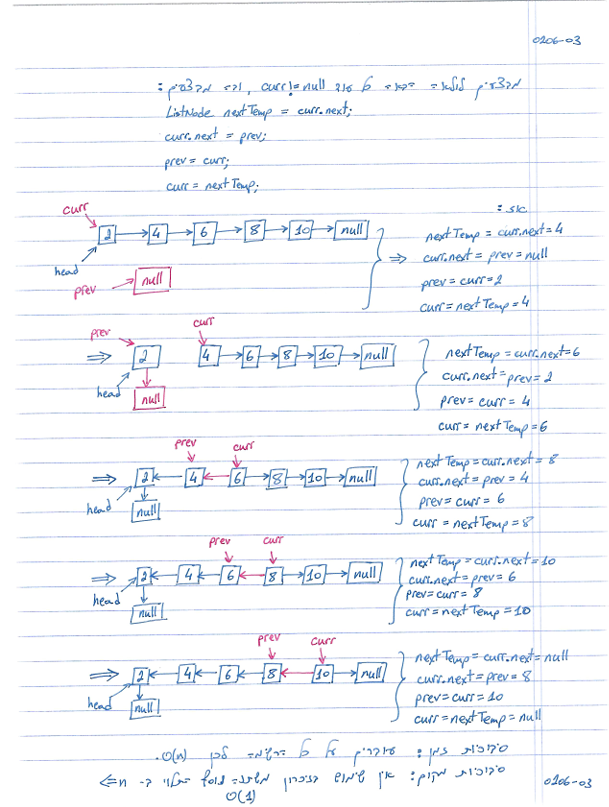 0206-03
מבצעים לולאה הבאה כל עוד curr!=null, ובה מבצעים:
ListNode nextTemp = curr.next;
curr.next = prev;
prev = curr;
curr = nextTemp;
אז:
curr
2 4 6 8 10 null
head
prev null
nextTemp = curr.next = 4
curr.next = prev = null
prev = curr = 2
curr = nextTemp = 4
prev curr
2 4 6 8 10 null
head
null
nextTemp = curr.next = 6
curr.next = prev = 2
prev = curr = 4
curr = nextTemp = 6
prev curr
2 4 6 8 10 null
head
null
nextTemp = curr.next = 8
curr.next = prev = 4
prev = curr = 6
curr = nextTemp = 8
prev curr
2 4 6 8 10 null
head
null
nextTemp = curr.next = 10
curr.next = prev = 6
prev = curr = 8
curr = nextTemp = 10
prev curr
2 4 6 8 10 null
head
null
nextTemp = curr.next = null
curr.next = prev = 8
prev = curr = 10
curr = nextTemp = null
סיבוכיות זמן: עוברים על כל הרשימה לכן O(n).
סיבוכיות מקום: אין שימוש בזיכרון משתנה נוסף התלוי ב- n ⇐
O(1)
0206-03